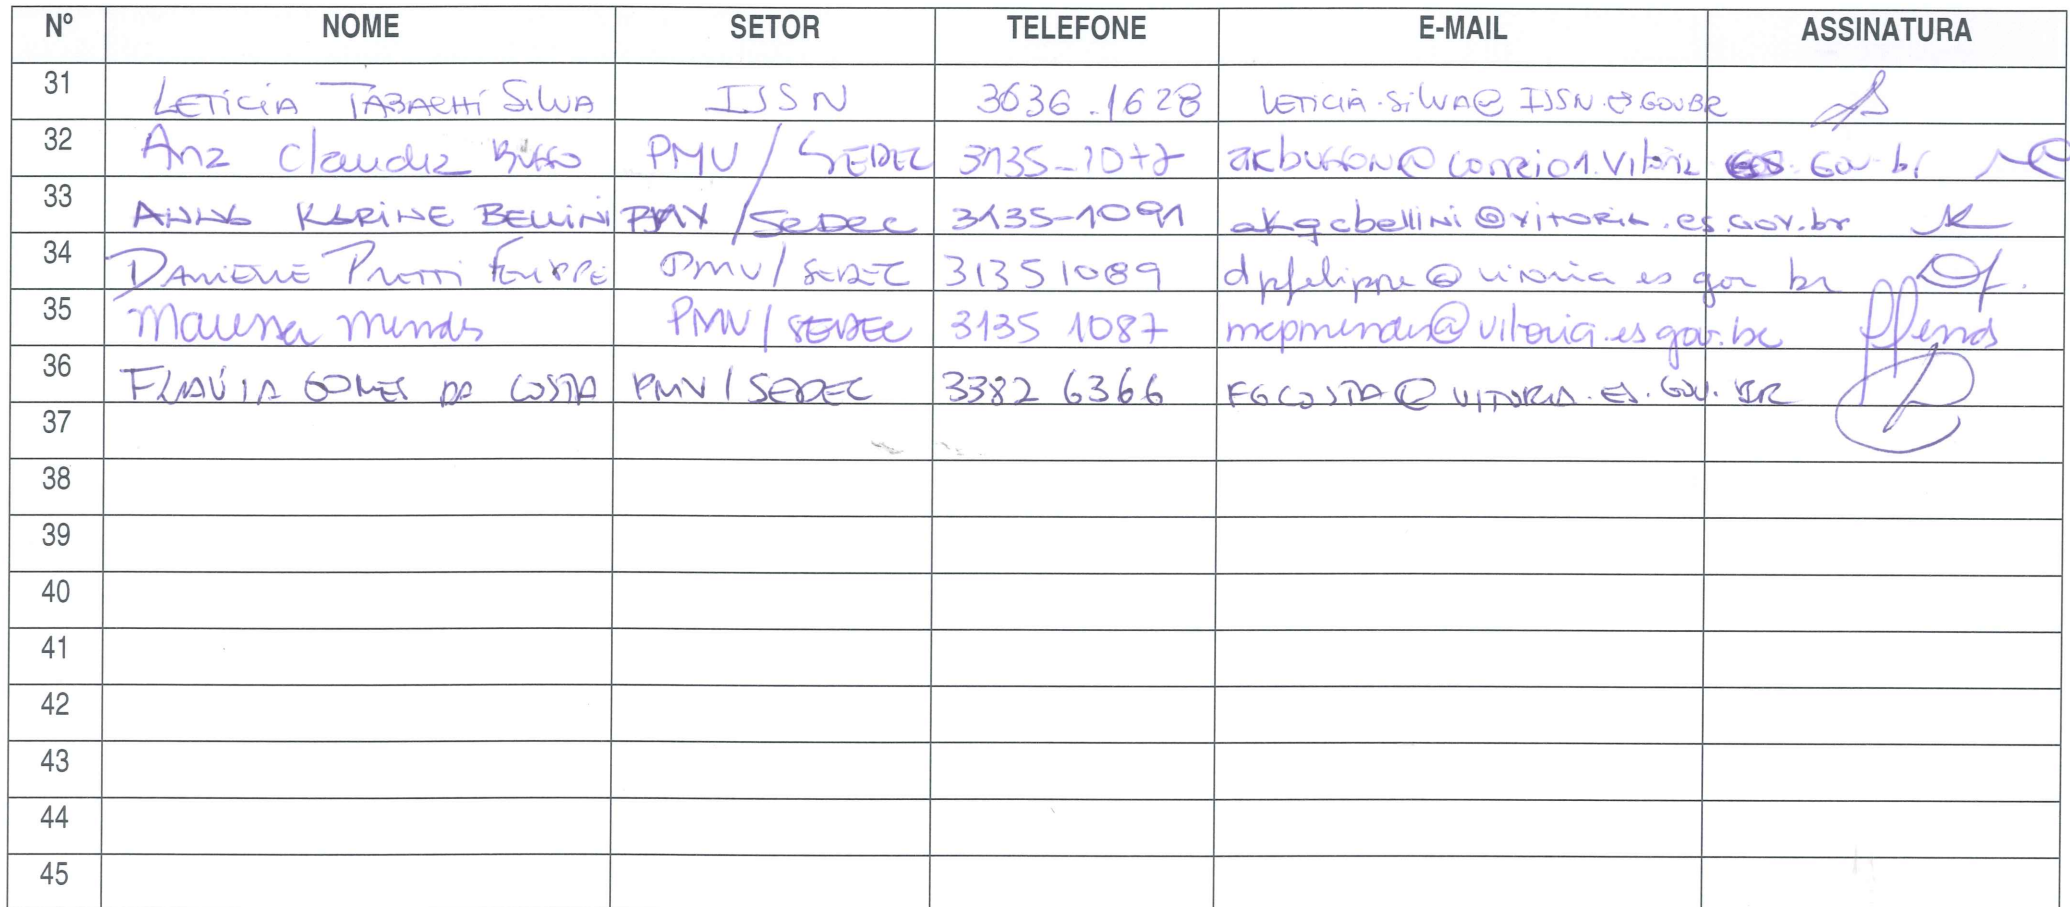 Nº NOME SETOR TELEFONE E-MAIL ASSINATURA
31 LETICIA TABACHI SILVA IJSN 3636.1628 LETICIA.SILVA@IJSN.ES.GOV.BR
32 Ana Claudia PMV/SEDEC 3135-1077
33 ANNA KARINE BELLINI PMV/SEDEC 3135-1091 akgcbellini@VITORIA.es.GOV.br
34 DANIELLE FELIPPE PMV/SEDEC 31351089 dpfelippe@vitoria es gov br
35 Mendes PMV/SEDEC 3135 1087 mcpmendes@vitoria.es.gov.br
36 FLAVIA GOMES DA COSTA PMV/SEDEC 3382 6366 FGCOSTA@VITORIA.ES.GOV.BR
37
38
39
40
41
42
43
44
45